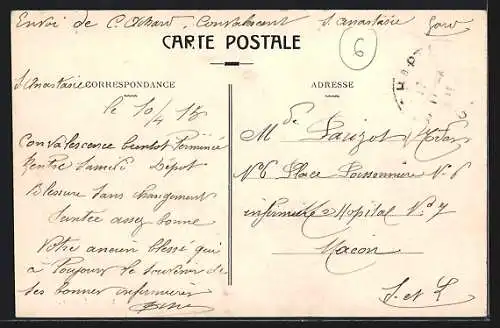 Envoi de C. Achard, Convalescent S. Anastasie Gard
6
CARTE POSTALE
S. Anastasie CORRESPONDANCE
ADRESSE
le 10/4 18
Convalescence bientot Terminée
Rentre Samedi Dépot
Blessure Sans changement
Santée assez bonne
Votre ancien blessé qui
a Toujours le souvenir de
ses bonnes infirmières
M de Lauzot
N°6 Place Poissonnière N. 6
infirmière Hopital N° 7
Macon
S. et L